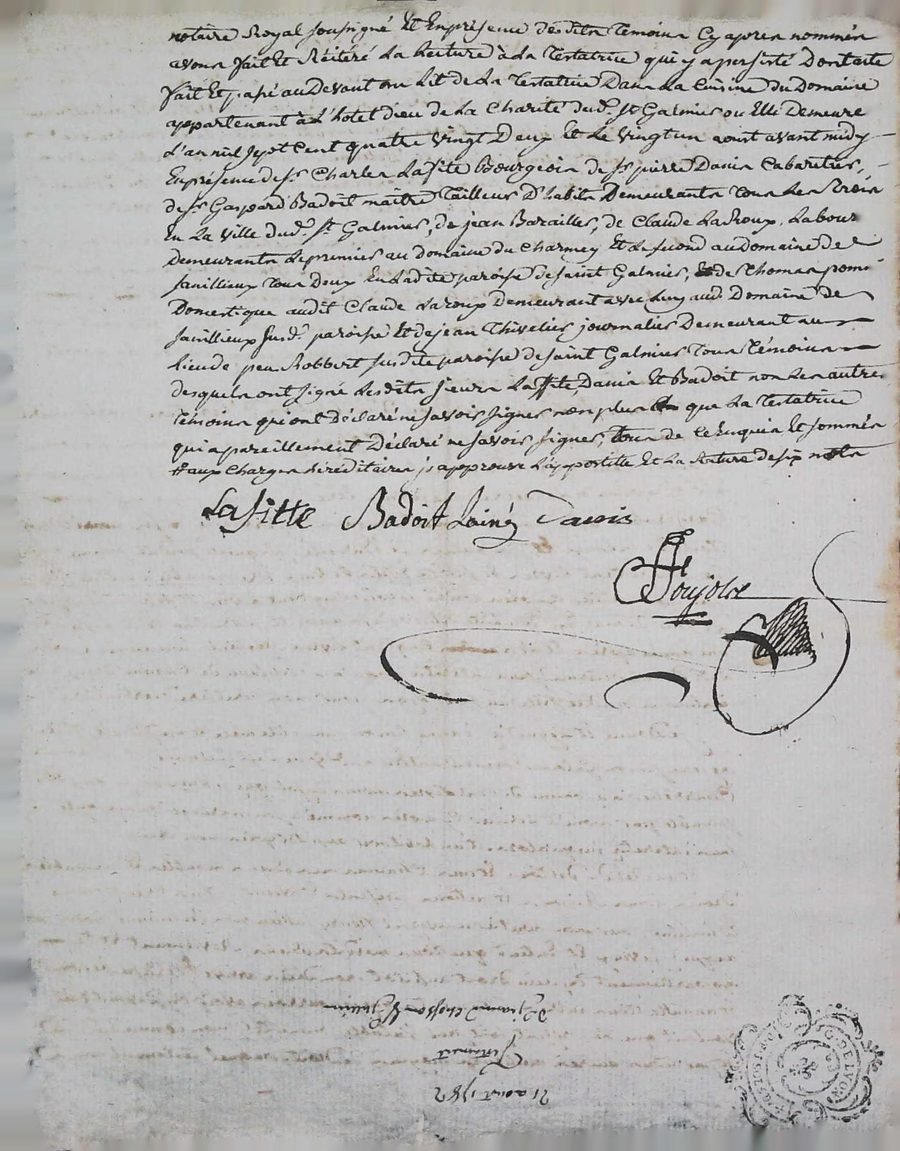 notaire Royal soussigné Et Enprésence desdits Temoins Cy apres nommés
avons fait Et Réitéré La Lecture à La Testatrice qui y a persisté Dont acte
fait Et passé au Devant du Lit de La Testatrice Dans La Cuisine du Domaine
appartenant à L'hotel dieu de La Charité dud. St Galmier ou Elle Demeure
L'an mil sept Cent quatre vingt Deux Et Le vingt un aoust avant midy
En présence de sr. Charles Lafitte Bourgeois de sr. pierre Davis Cabaretier,
de sr. Gaspard Badoit maitre Tailleur D'habits Demeurants Tous Les trois
En La Ville dud. St Galmier, de jean Barailles, de Claude Laroux Labour
Demeurants Le premier au Domaine du Charmey Et Le second au domaine de
Janillieux Tous Deux En Ladite paroisse de saint Galmier, de Thomas
Domestique audit Claude Laroux Demeurant avec Luy aud. Domaine de
Janillieux susd. paroisse Et de jean Thivelier journalier Demeurant au
Lieu de Robbert susdite paroisse de saint Galmier Tous Témoins
desquels ont signé Lesdits sieurs Lafitte, Davis Et Badoit non Les autres
Témoins qui ont Déclaré ne savoir signer non plus que La Testatrice
qui a pareillement Déclaré ne savoir signer, tous de ce Enquis Et sommés
aux Charges héréditaires j'approuve L'appostille Et La Rature de six mots
Lafitte Badoit Lainé Davis
Poujols
Testament
21 aout 1782
G. DE LYON